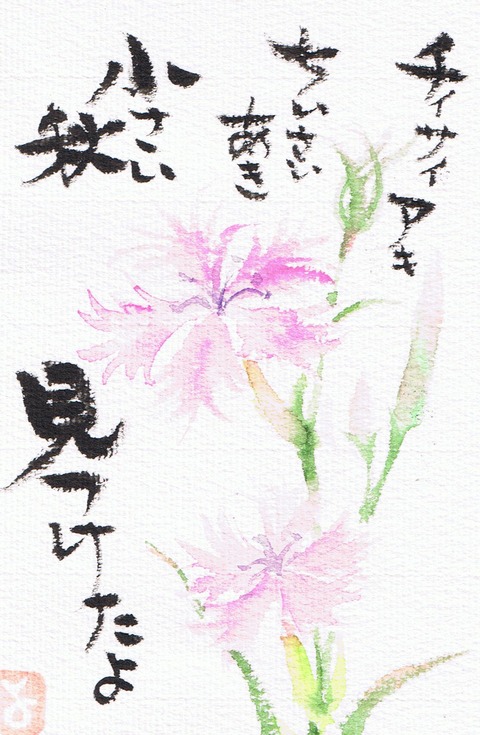 チイサイアキ
ちいさい
あき
小さい
秋
見つけたよ
と